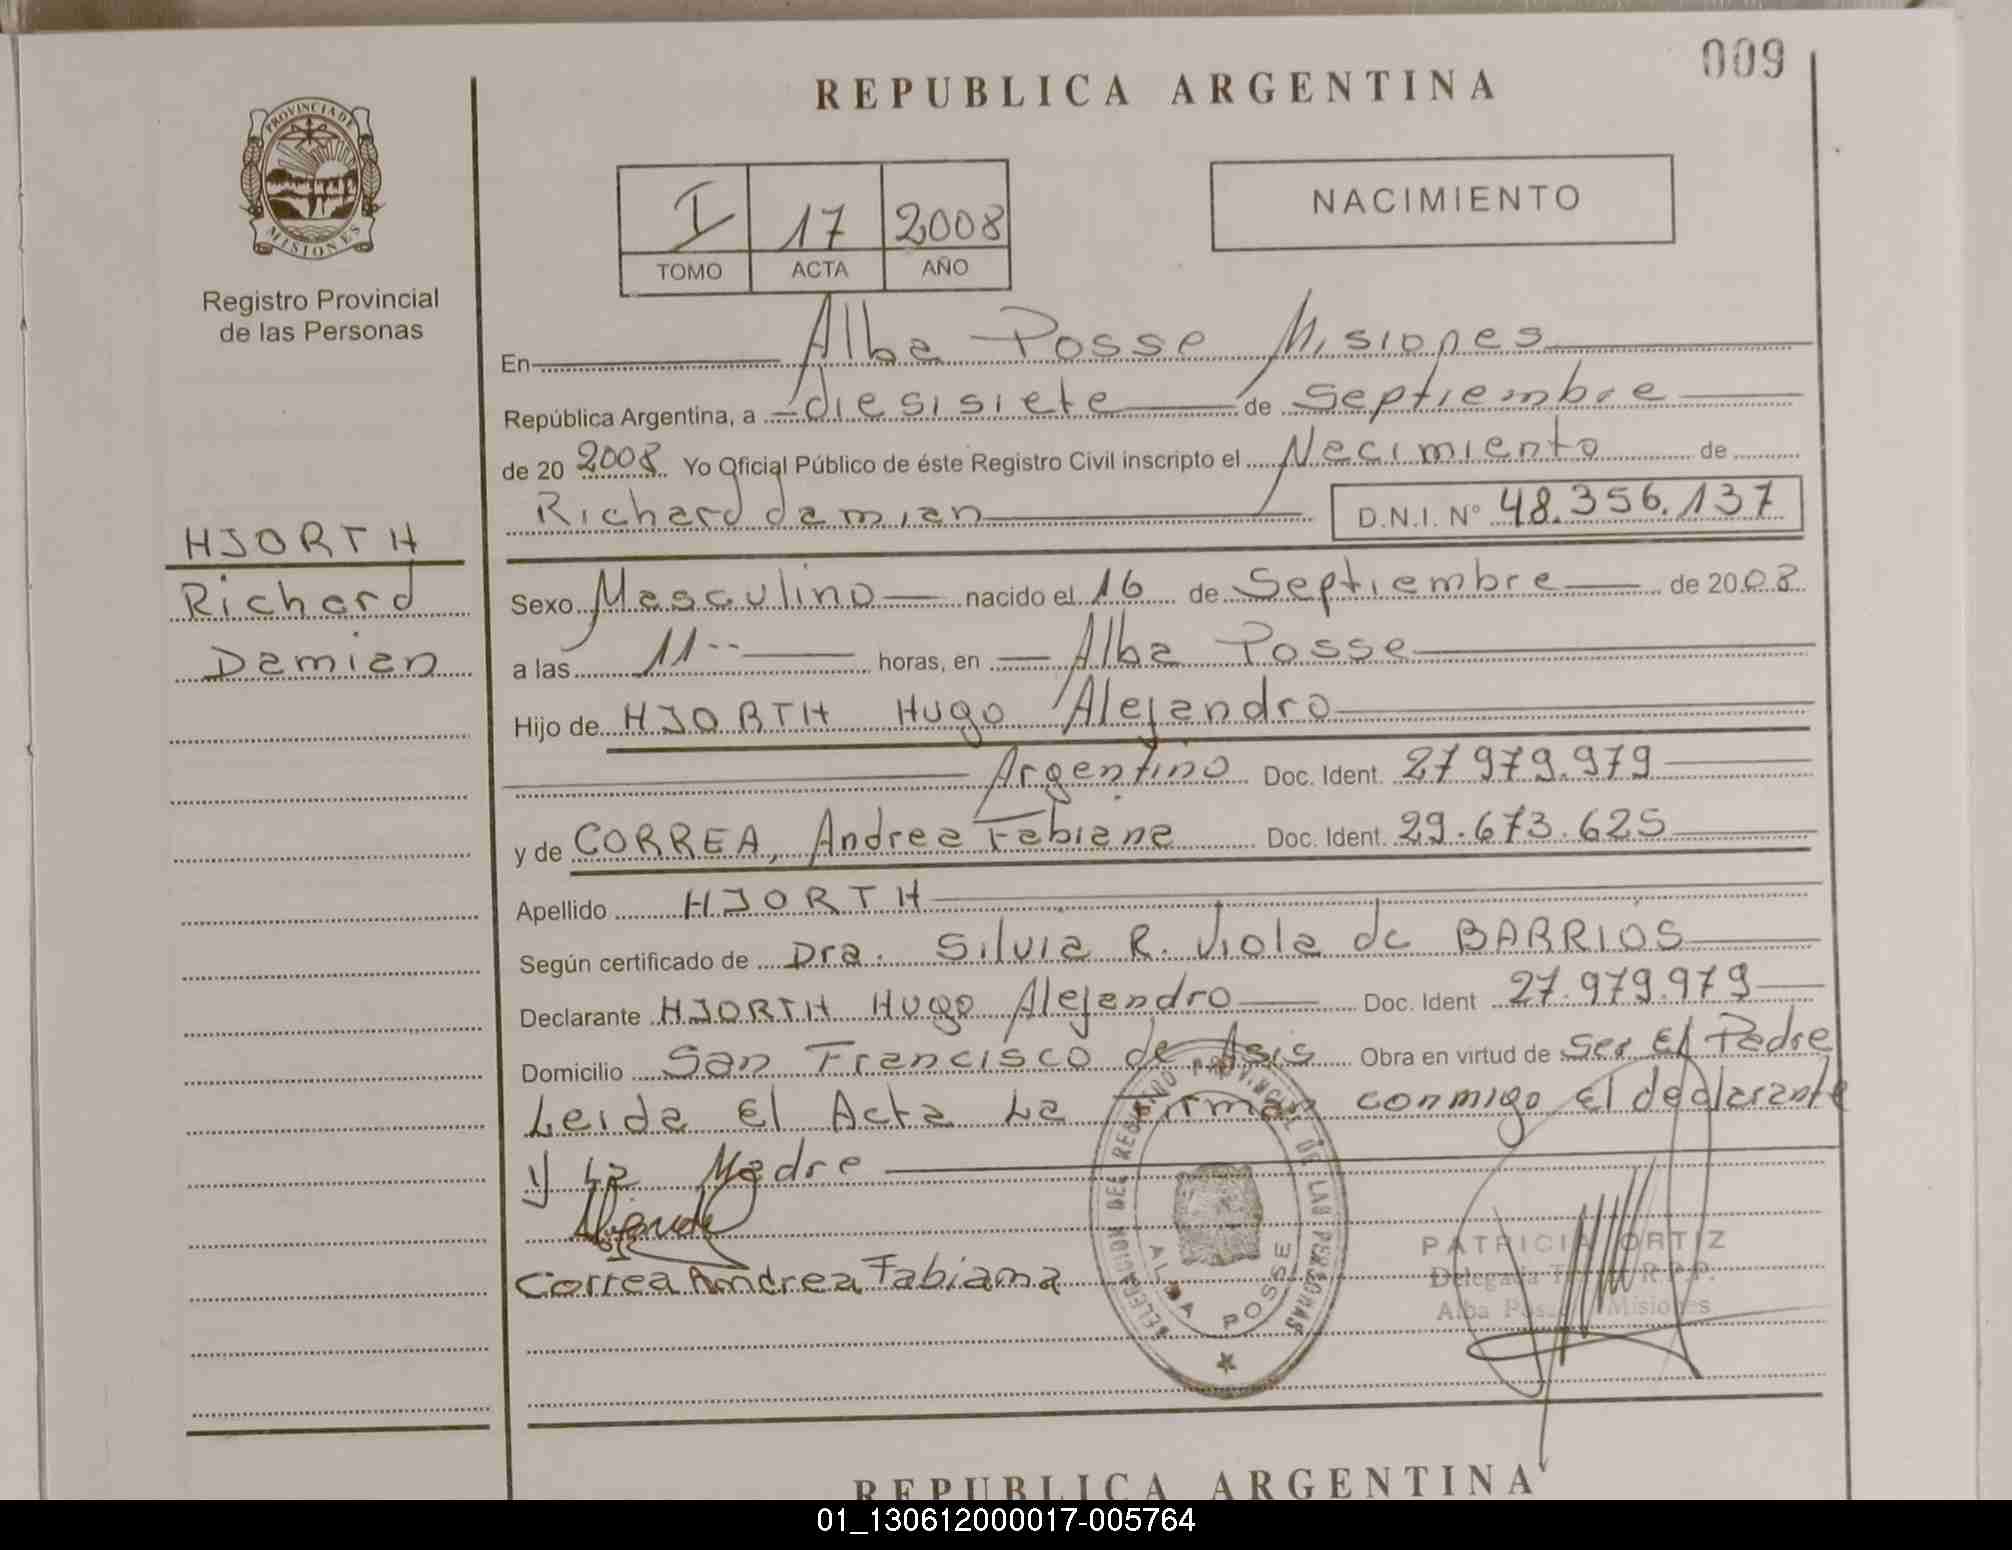 009
REPUBLICA ARGENTINA
PROVINCIA DE
MISIONES
Registro Provincial
de las Personas
I 17 2008
TOMO ACTA AÑO
NACIMIENTO
En Alba Posse Misiones
República Argentina, a diesisiete de Septiembre
de 20 2008 Yo Oficial Público de éste Registro Civil inscripto el Nacimiento de
Richard damian D.N.I. N° 48.356.137
HJORTH
Richard
Damian
Sexo Masculino nacido el 16 de Septiembre de 2008
a las 11-- horas, en Alba Posse
Hijo de HJORTH Hugo Alejandro
Argentino Doc. Ident. 27 979.979
y de CORREA, Andrea Fabiana Doc. Ident. 29.673.625
Apellido HJORTH
Según certificado de Dra. Silvia R. Viola de BARRIOS
Declarante HJORTH Hugo Alejandro Doc. Ident 27.979.979
Domicilio San Francisco de Asis Obra en virtud de Ser El Padre
Leida El Acta La Firman conmigo El declarante
y La Madre
Correa Andrea Fabiana
DELEGACION DEL REGISTRO PROVINCIAL DE LAS PERSONAS
ALBA POSSE
PATRICIA ORTIZ
Delegada R.P.P.
Alba Posse Misiones
REPUBLICA ARGENTINA
01_130612000017-005764